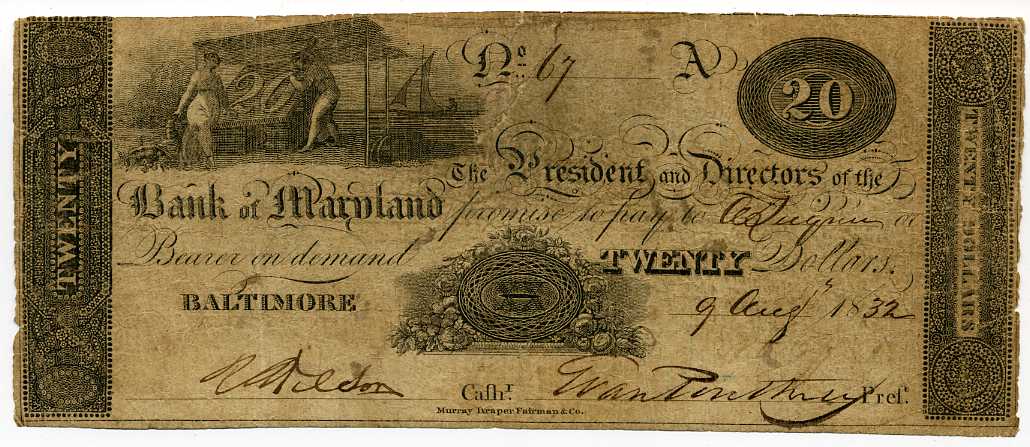 TWENTY
20
No. 67 A
20
The President and Directors of the
Bank of Maryland promise to pay to or
Bearer on demand TWENTY Dollars.
BALTIMORE 9 Augt 1832
R Wilson Cashr. Evan Poultney Prest.
Murray Draper Fairman & Co.
TWENTY DOLLARS